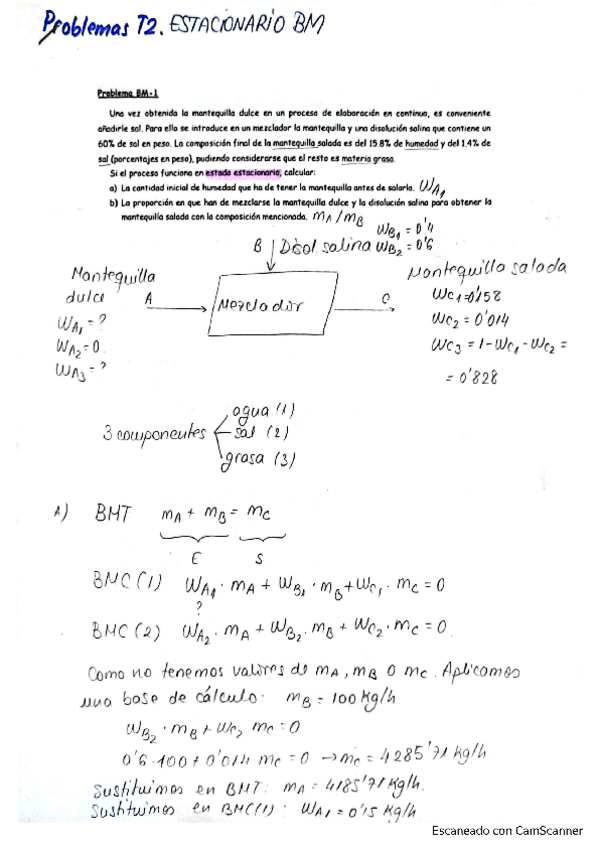 Problemas T2. ESTACIONARIO BM
Problema BM-1
Una vez obtenida la mantequilla dulce en un proceso de elaboración en continuo, es conveniente
añadirle sal. Para ello se introduce en un mezclador la mantequilla y una disolución salina que contiene un
60% de sal en peso. La composición final de la mantequilla salada es del 15.8% de humedad y del 1.4% de
sal (porcentajes en peso), pudiendo considerarse que el resto es materia grasa.
Si el proceso funciona en estado estacionario, calcular:
a) La cantidad inicial de humedad que ha de tener la mantequilla antes de salarla. WA1
b) La proporción en que han de mezclarse la mantequilla dulce y la disolución salina para obtener la
mantequilla salada con la composición mencionada. mA/mB
WB1 = 0'4
B Disol salina WB2 = 0'6
Mantequilla
dulce A
WA1 = ?
WA2 = 0
WA3 = ?
Mezclador
C
Mantequilla salada
WC1 = 0'158
WC2 = 0'014
WC3 = 1 - WC1 - WC2 =
= 0'828
3 componentes
agua (1)
sal (2)
grasa (3)
A) BMT mA + mB = mC
E S
BMC (1) WA1 · mA + WB1 · mB + WC1 · mC = 0
?
BMC (2) WA2 · mA + WB2 · mB + WC2 · mC = 0
Como no tenemos valores de mA, mB o mC. Aplicamos
una base de cálculo: mB = 100 kg/h
WB2 · mB + WC2 mC = 0
0'6 · 100 + 0'014 mC = 0 → mC = 4285'71 kg/h
Sustituimos en BMT: mA = 4185'71 kg/h.
Sustituimos en BMC(1): WA1 = 0'15 kg/h
Escaneado con CamScanner